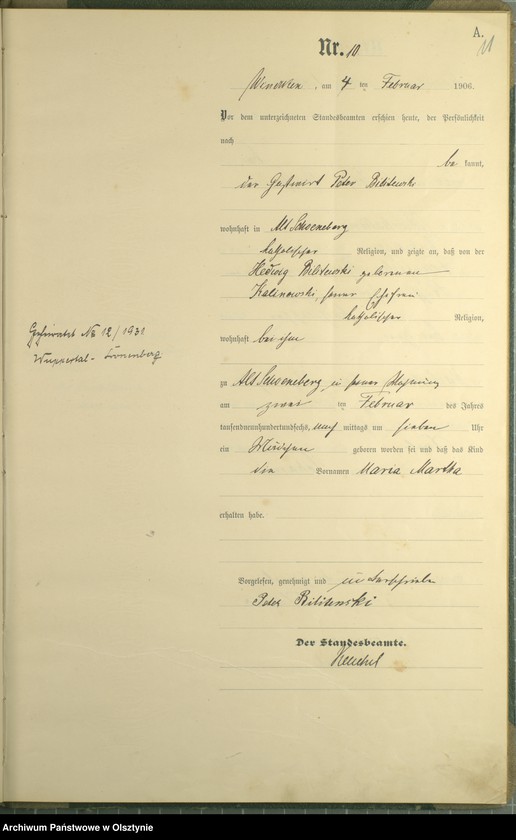 A.
11
Nr. 10
am 4 ten Februar 1906.
Vor dem unterzeichneten Standesbeamten erschien heute, der Persönlichkeit
nach
be kannt,
der Gastwirt Peter Bilitewski
wohnhaft in Alt Schoeneberg
katholischer Religion, und zeigte an, daß von der
Hedwig Bilitewski geborenen
Kalinowski, seiner Ehefrau
katholischer Religion,
wohnhaft bei ihm
zu Alt Schoeneberg in seiner Wohnung
am zwei ten Februar des Jahres
tausendneunhundertundsechs, nach mittags um sieben Uhr
ein Mädchen geboren worden sei und daß das Kind
die Vornamen Maria Martha
erhalten habe.
Geheiratet No 12/1931
Wuppertal-
Vorgelesen, genehmigt und unterschrieben
Peter Bilitewski
Der Standesbeamte.
Archiwum Państwowe w Olsztynie